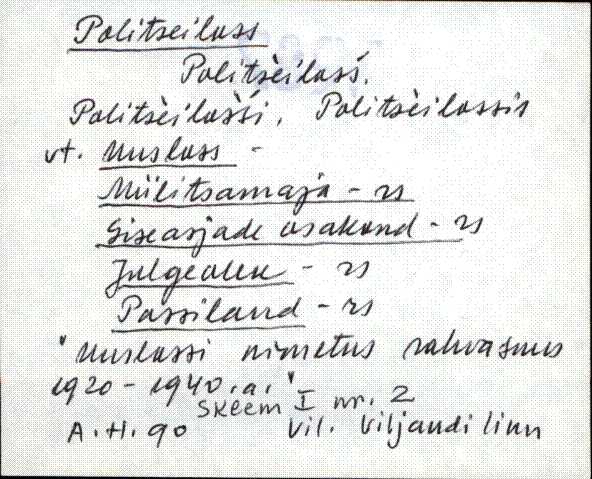 Politseiloss
Politsèilośś.
Politsèilośśi, Politsèilossin
vt. Uusloss -
Miilitsamaja - rs
Siseasjade osakond - rs
Julgeolek - rs
Passilaud - rs
"Uuslossi nimetus rahvasuus
1920 - 1940.a."
Skeem I nr. 2
A.H. 90 Vil. Viljandi linn